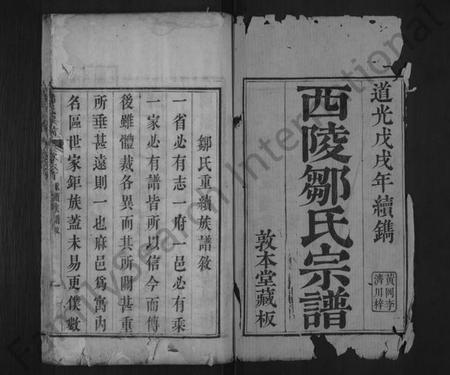 道光戊戌年續鐫
西陵鄒氏宗譜
敦本堂藏板
黃岡李
濟川梓
鄒氏重續族譜敘
一省必有志一府一邑必有乘
一家必有譜皆所以信今而傳
後雖體裁各異而其所關甚重
所垂甚遠則一也麻邑爲寰內
名區世家鉅族蓋未易更僕數
FamilySearch International